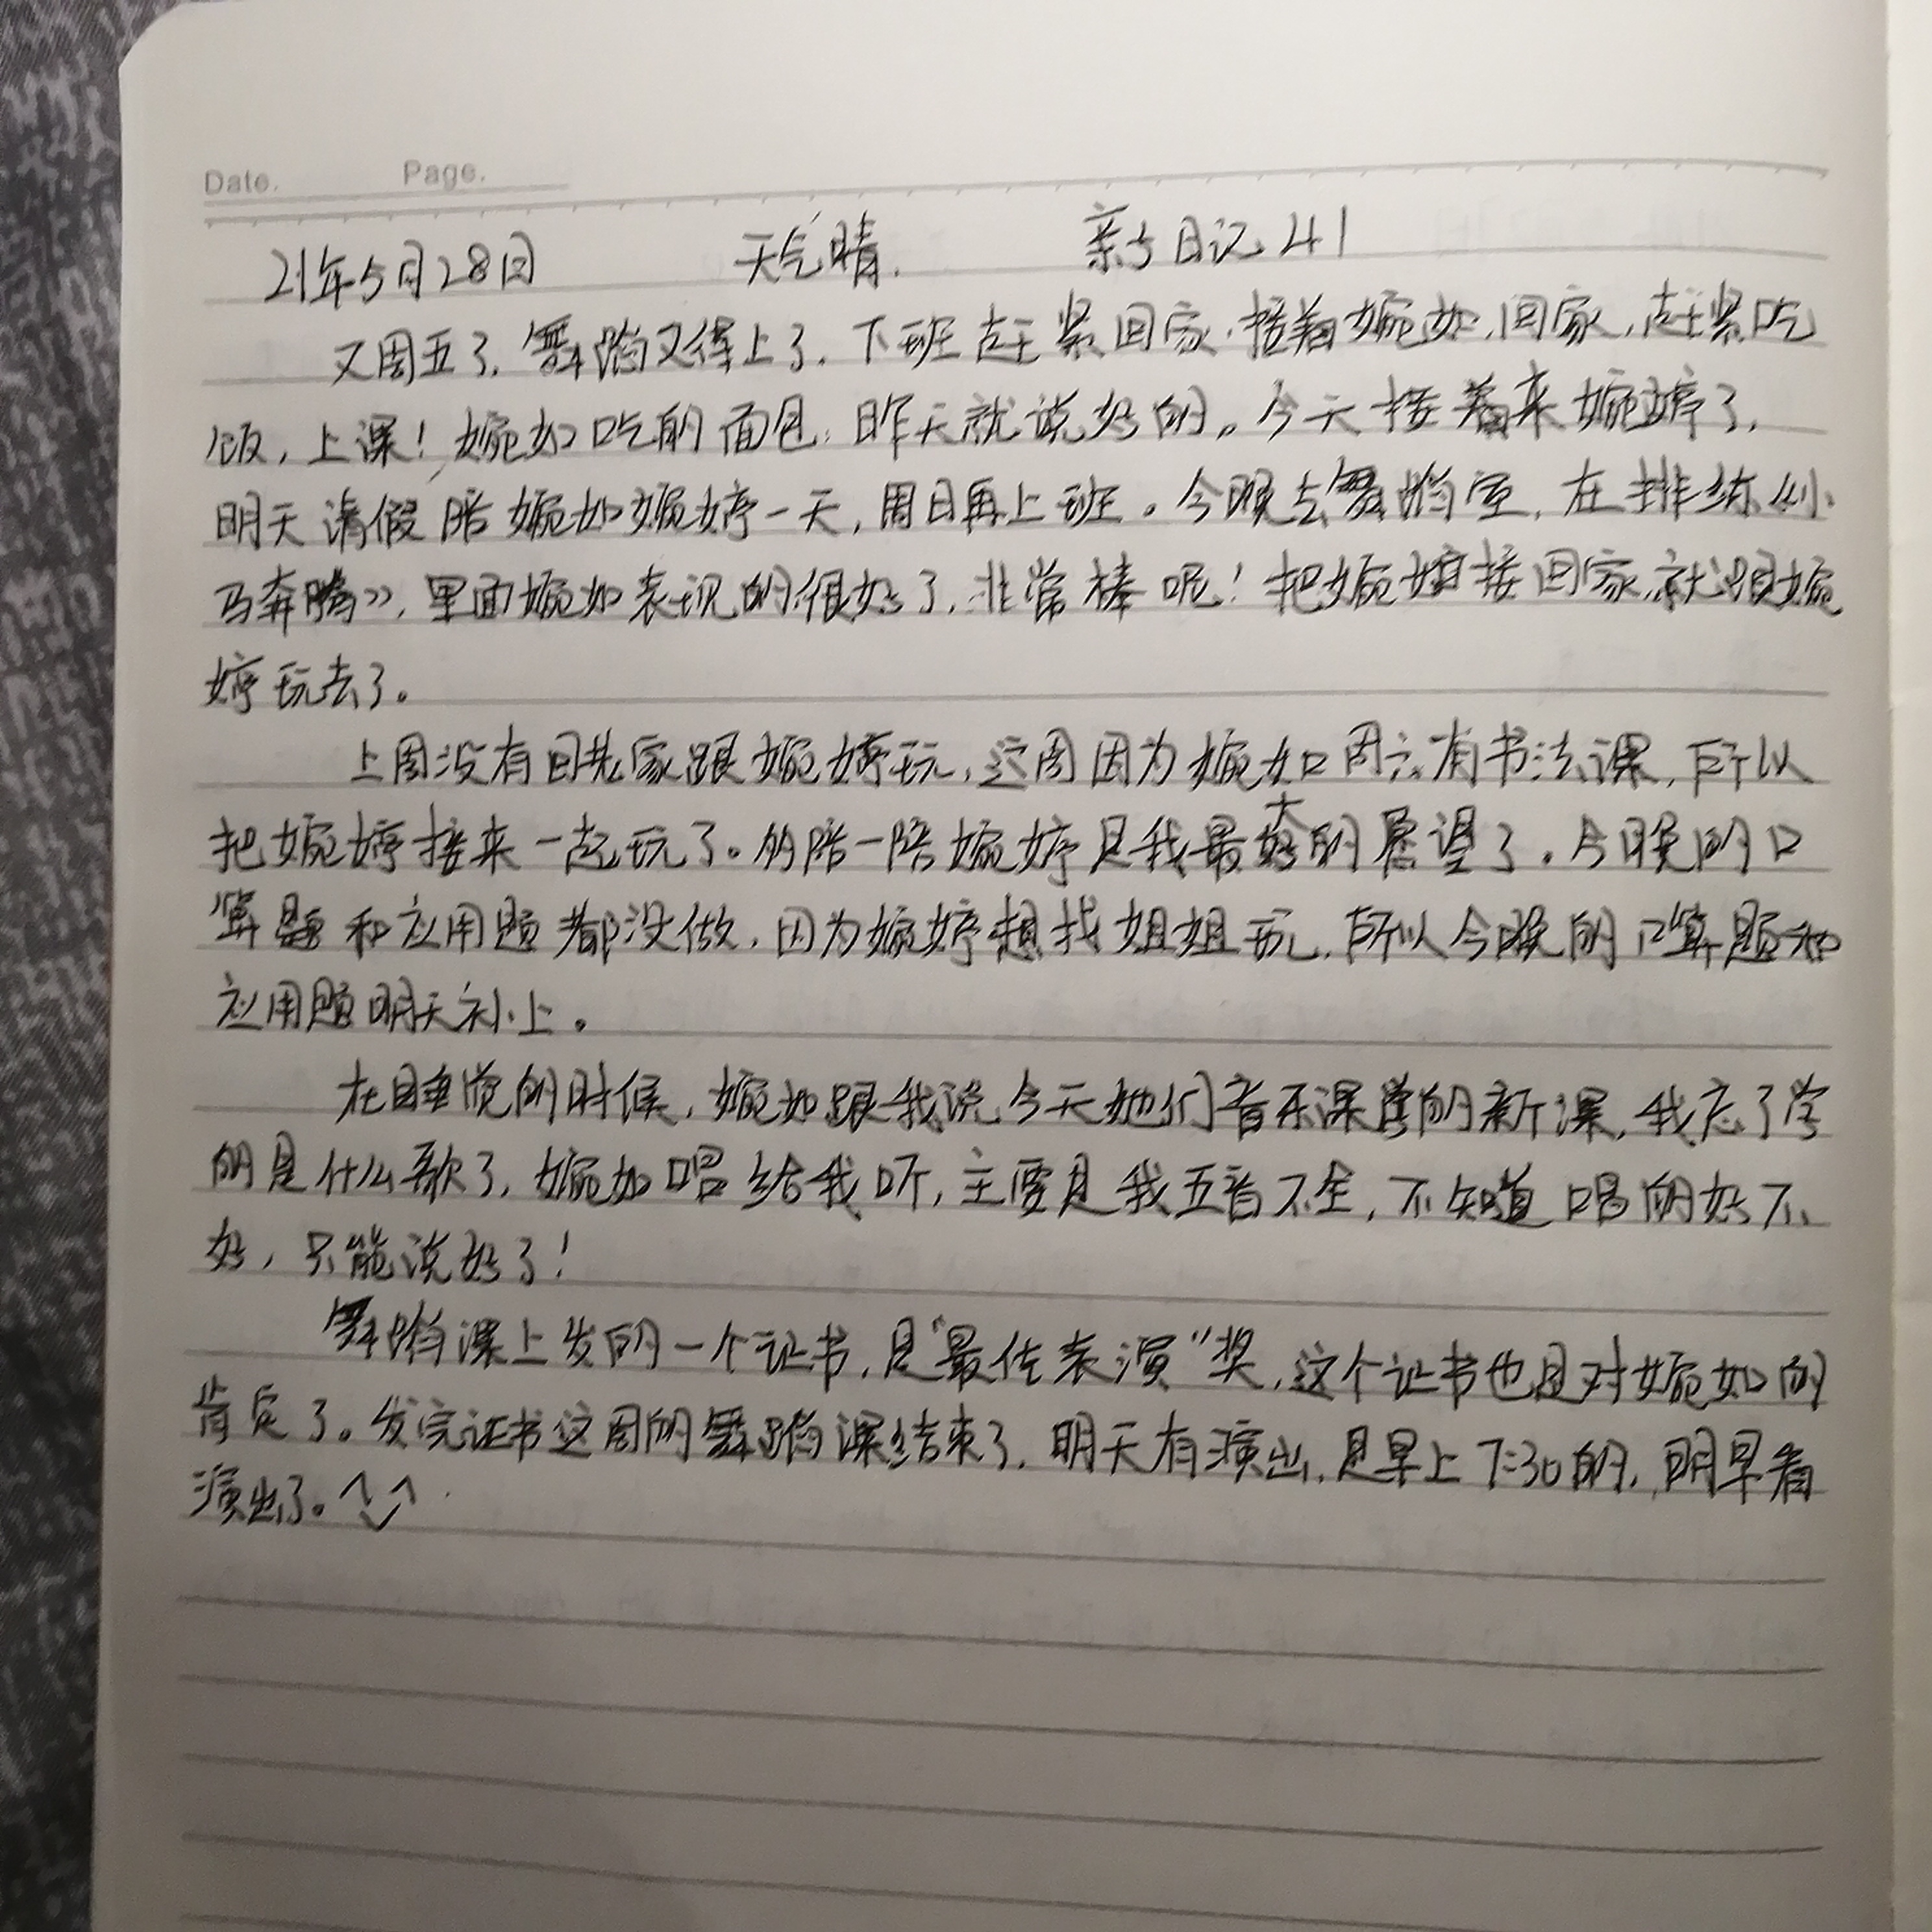 Date. Page.
21年5月28日 天气晴. 亲子日记41
又周五了,舞蹈又得上了.下班赶紧回家,接着婉如,回家,赶紧吃
饭,上课!婉如吃的面包,昨天就说好的。今天接着来婉婷了,
明天请假陪婉如婉婷一天,周日再上班。今晚去舞蹈室,在排练《小
马奔腾》,里面婉如表现的很好了,非常棒呢!把婉婷接回家,就跟婉
婷玩去了。
上周没有回老家跟婉婷玩,这周因为婉如周六有书法课,所以
把婉婷接来一起玩了。多陪一陪婉婷是我最大的愿望了。今晚的口
算题和应用题都没做,因为婉婷想找姐姐玩,所以今晚的口算题和
应用题明天补上。
在睡觉的时候,婉如跟我说今天她们音乐课学的新课,我忘了学
的是什么歌了,婉如唱给我听,主要是我五音不全,不知道唱的好不
好,只能说好了!
舞蹈课上发的一个证书,是"最佳表演"奖,这个证书也是对婉如的
肯定了。发完证书这周的舞蹈课结束了,明天有演出,是早上7:30的,明早看
演出了。^_^